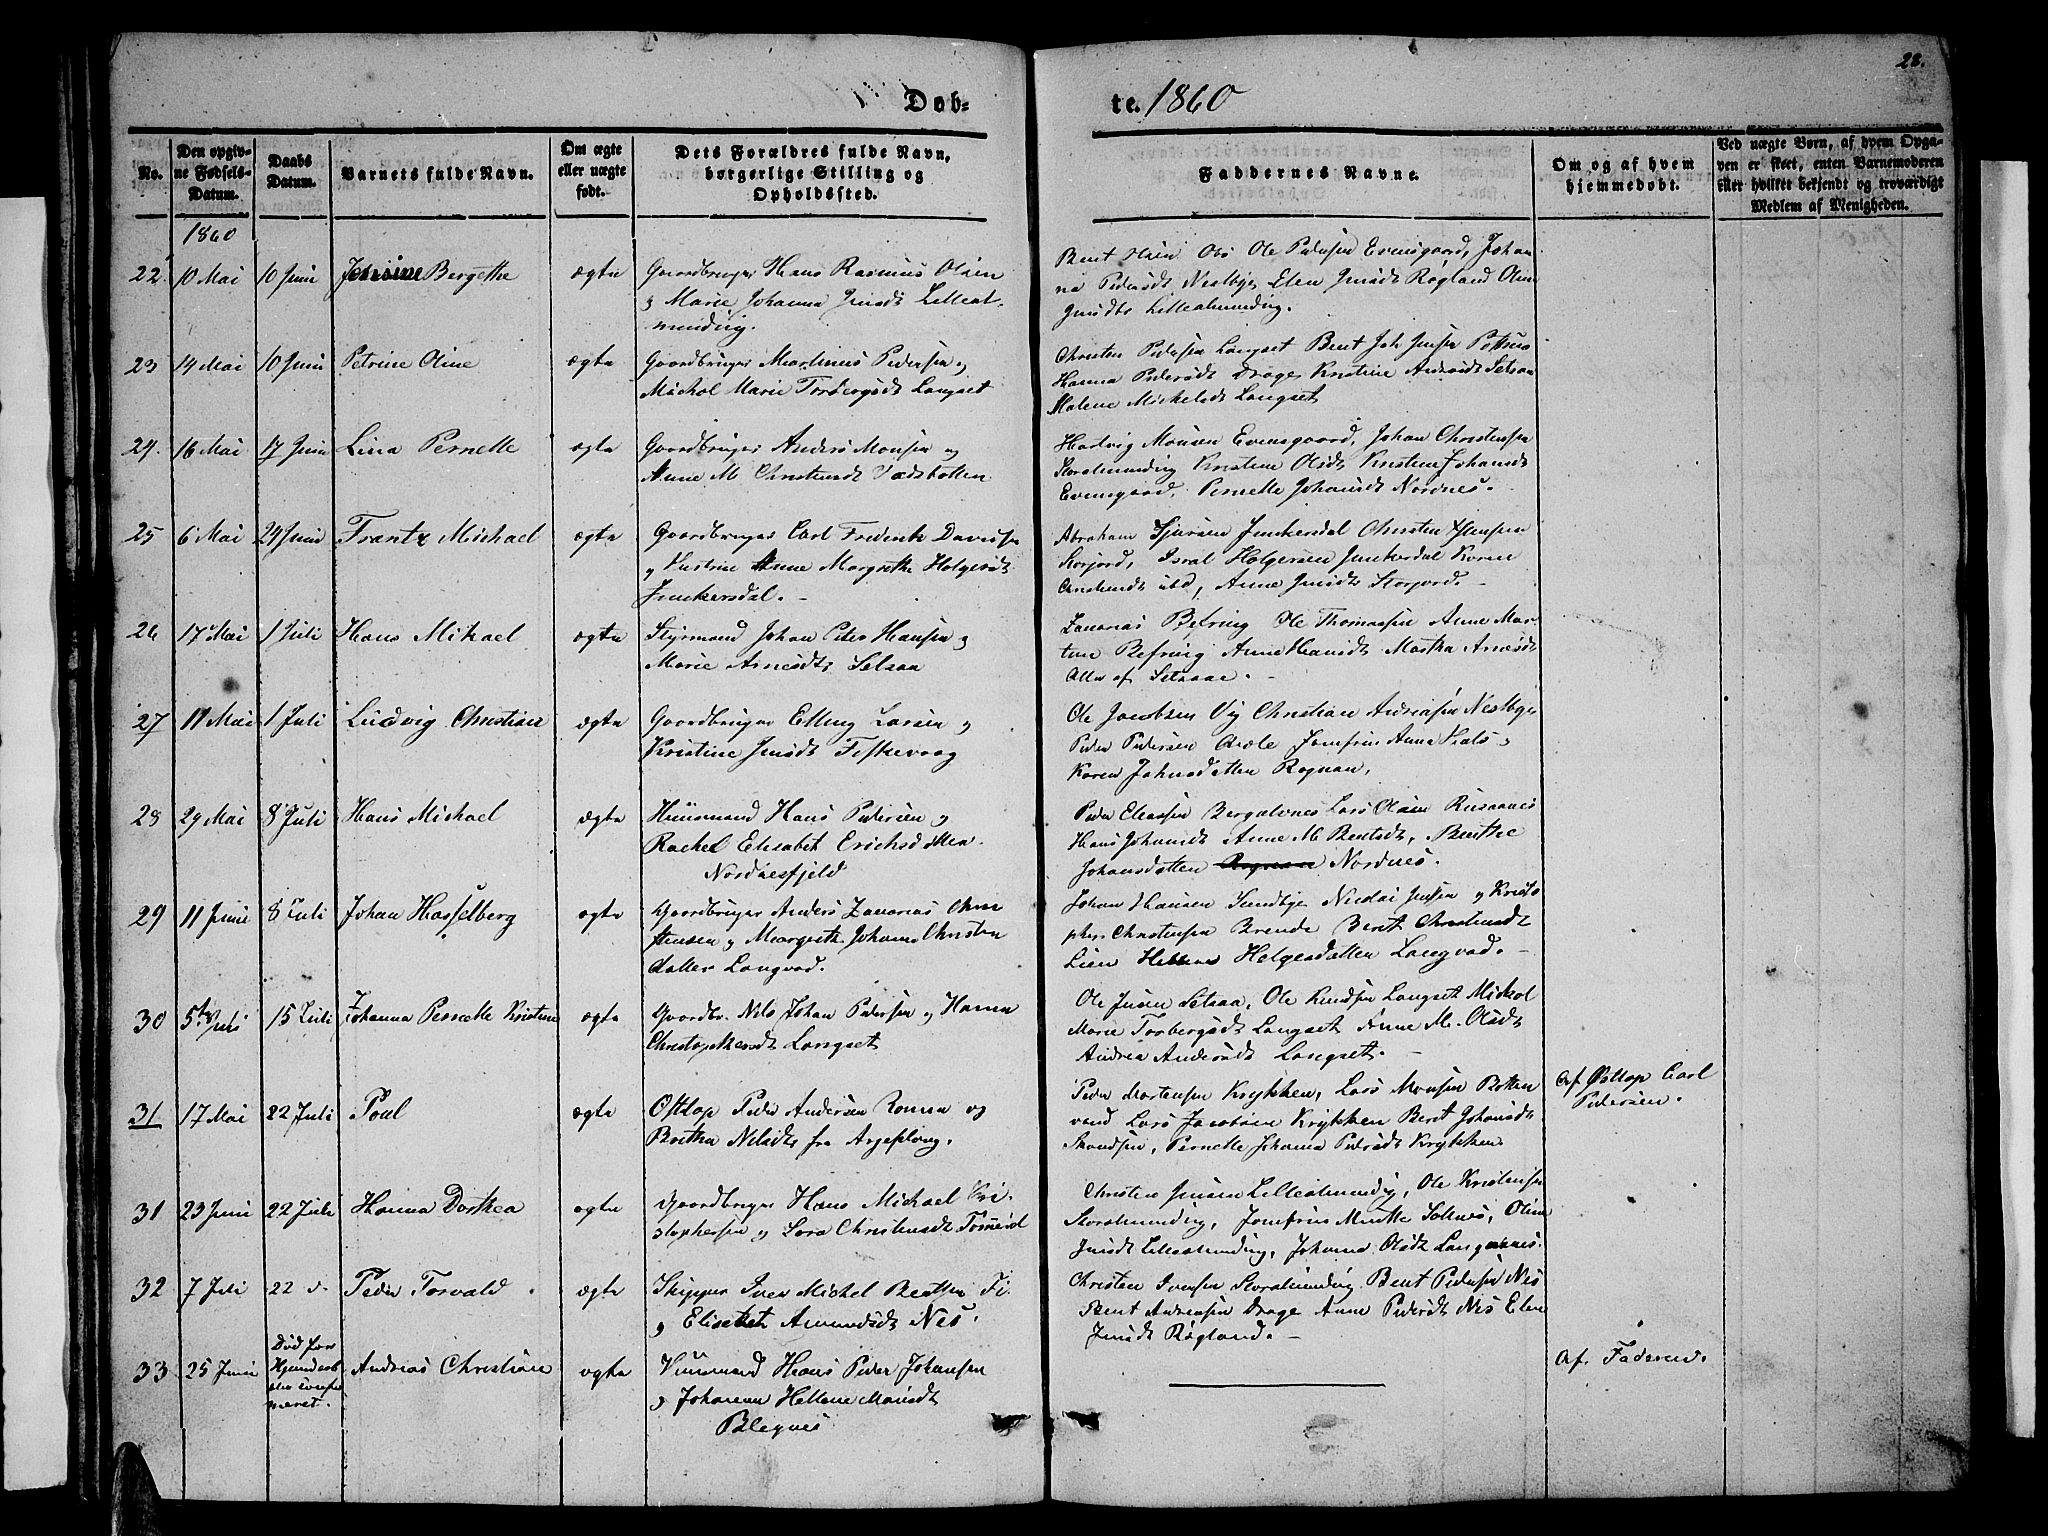 28.
Døb=
te. 1860
No.
Den opgiv-
ne Fødsels-
Datum.
Daabs
Datum.
Barnets fulde Navn.
Om ægte
eller uægte
født.
Dets Forældres fulde Navn,
borgerlige Stilling og
Opholdssted.
Faddernes Navne.
Om og af hvem
hjemmedøbt.
Ved uægte Børn, af hvem Opga-
ven er skeet, enten Barnemoderen
eller hvilket bekjendt og troværdigt
Medlem af Menigheden.
1860
22. 10 Mai 10 Juni Bergethe ægte
Gaardbruger Hans Rasmus Olsen
og Marie Johanna Jensdt Lilleal-
mending.
Bent Ole Pedersen Evensgaard, Johan-
na Pedersdt Nestbye Elen Jensdt Røgland Oline
Jensdtr Lillealmending.
23 14 Mai 10 Juni Petrine Oline ægte
Gaardbruger Martinus Pedersen og
Michol Marie Torbergsdt Langset
Christen Pedersen Langset Bent Joh. Jensen
Hanna Pedersdt Drage, Kristine Andersdt Setsaa
Malene Mickelsdt Langset
24. 16 Mai 17 Juni Lina Pernelle ægte
Gaardbruger Anders Monsen og
Anne M. Christensdt Vadsbotten
Hartvig Monsen Evensgaard, Johan Christensen
Storalmending Kristine Olsdt Kristine Johansdt
Evensgaard, Pernelle Johansdt Nordnes.
25 6 Mai 24 Juni Frantz Michael ægte
Gaardbruger Carl Frederik Davidsen
og Hustrue Anne Margrethe Holgersdt
Junkersdal. -
Abraham Sjursen Junkersdal Christen Hansen
Storjord, Isral Holgersen Junkerdal Karen
Christensdt ibd, Anne Jensdt Storjord. -
26 17 Mai 1 Juli Hans Mikael ægte
Styrmand Johan Peter Hansen og
Marie Arnesdtr Setsaa
Zacarias Befring Ole Thomassen Anne Mar-
tine Befring Anne Hansdt Martha Arnesdt
Alle af Setsaae. -
27 11 Mai 1 Juli Ludvig Christian ægte
Gaardbruger Elling Larsen og
Kristine Jensdt Fiskevaag
Ole Jacobsen Vig Christian Andreasen Nestbye
Peder Pedersen Jomfru Anna
Karen Johnsdatter Rognan,
28 29 Mai 8 Juli Hans Michael ægte
Huusmand Hans Pedersen og
Rachel Elisabet Erichsdatter
Nordnesfjeld
Peder Eliassen Bergulvnes Lars Olsen Rusaanes
Hans Johansdt Anne M. Bentsdt, Benthe
Johansdatter Rognan Nordnes.
29 11 Juni 8 Juli Johan Hasselberg ægte
Gaardbruger Anders Zacarias Chri-
stensen og Margrethe Johanna Christen-
datter Langvad.
Johan Hansen Sundbye Nicolai Jensen og Kristo-
pher Christensen Brende Berit Christensdt
Lien Hellene Holgersdatter Langvad. -
30 15 Juli Johanna Pernelle Kristine ægte
Gaardbr. Nils Johan Pedersen og Hanna
Christophersdt Langset
Ole Jensen Setsaa, Ole Knudsen Langset Mickol
Marie Torbergsdt Langset Anne M. Olsdt
Andrea Andersdt Langset. -
31 17 Mai 22 Juli Poul ægte
Ostlap Peder Andersen Ronna og
Bretha Nilsdtr fra Arjeplong.
Peder Mortensen Krykken, Lars Monsen Botten-
vand Lars Jacobsen Krykken Beret Johansdt
Skandsen, Pernelle Johanna Pedersdt Krykken
Af Østlap Carl
Pedersen.
31 23 Juni 22 Juli Hanna Dorthea ægte
Gaardbruger Hans Michael Kri-
stophersen og Lora Christensdt
Christen Jensen Lillealmendig, Ole Kristensen
Storalmending, Jomfru Mette Saltnes, Oline
Jensdt Lillealmending, Johanna Olsdt Langaanes.
32 7 Juli 22 d. Peder Torvald ægte
Skipper Iver Michel Bentsen
og Elisabeth Amundsdt Nes.
Christen Iversen Storalmendig Bent Pedersen Nes
Bent Andreasen Drage Anne Pedersdt Nes Elen
Jensdt Røgland. -
33 25 Juni Død før
Andreas Christian ægte
Huusmand Hans Peder Johansen
og Johanna Hellene Monsdt
Blegnes
Af Faderen.